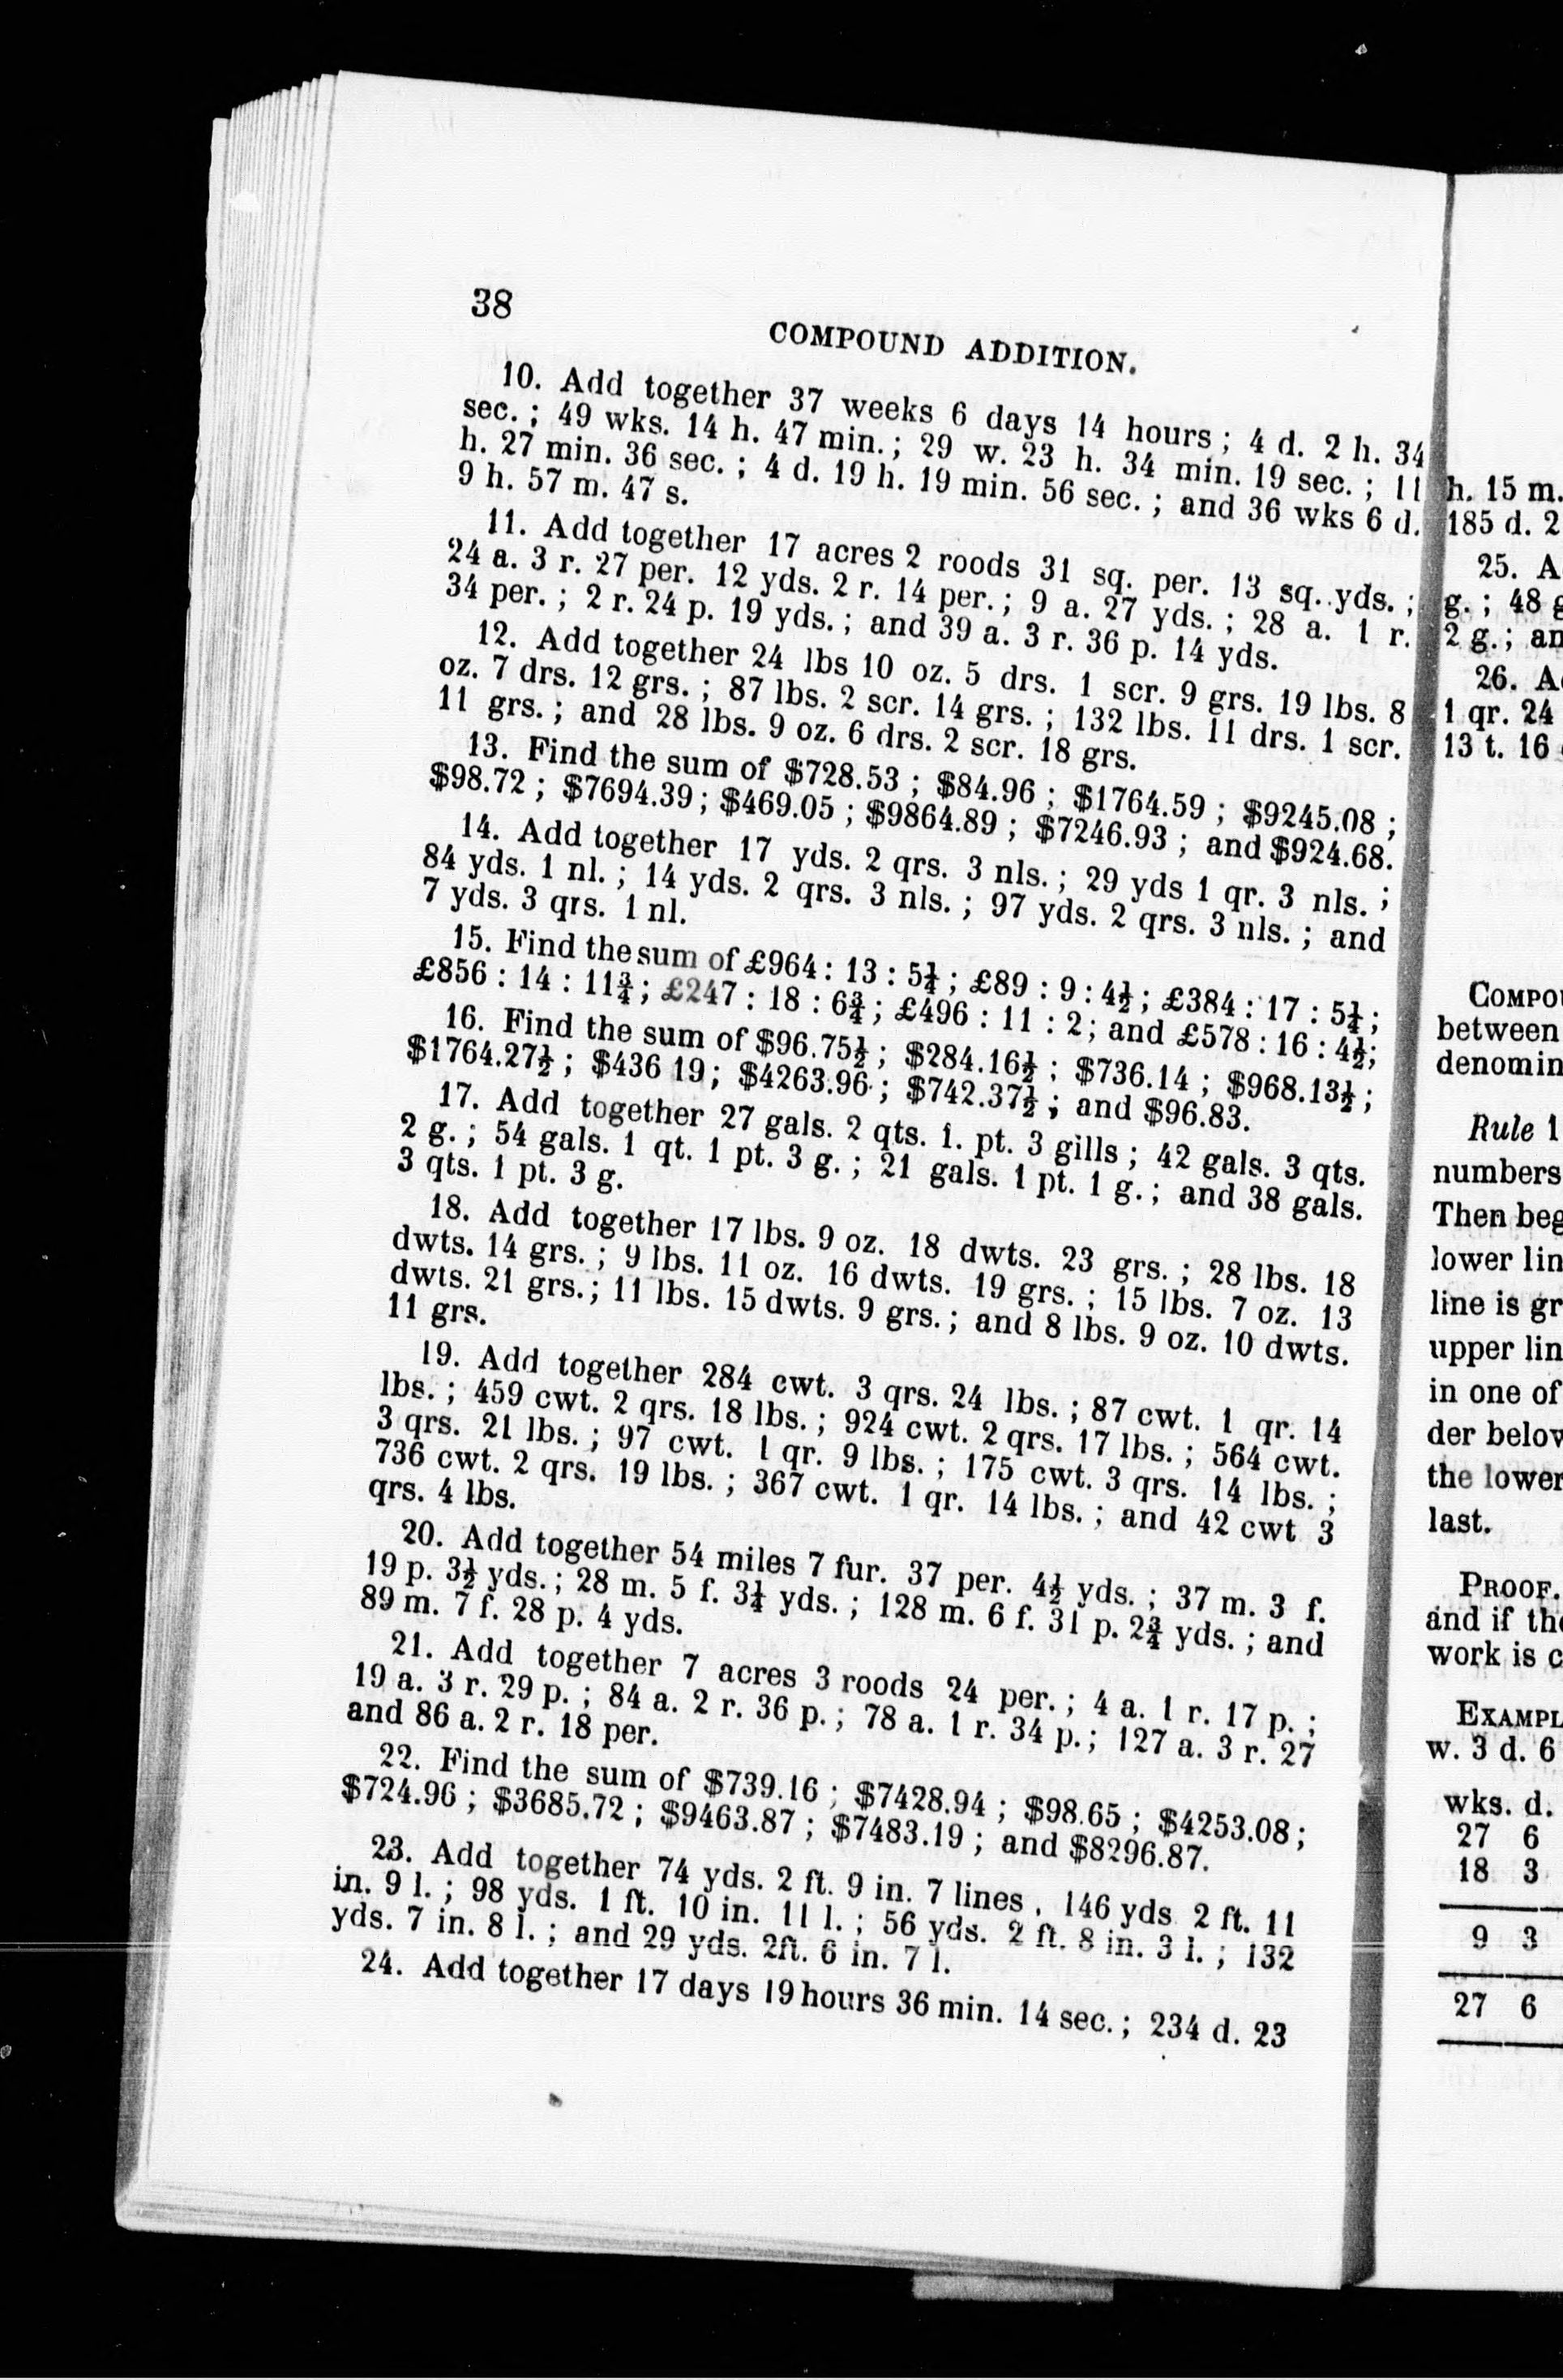 38
COMPOUND ADDITION.
10. Add together 37 weeks 6 days 14 hours ; 4 d. 2 h. 34
sec. ; 49 wks. 14 h. 47 min. ; 29 w. 23 h. 34 min. 19 sec. ; 11
h. 27 min. 36 sec. ; 4 d. 19 h. 19 min. 56 sec. ; and 36 wks 6 d.
9 h. 57 m. 47 s.
11. Add together 17 acres 2 roods 31 sq. per. 13 sq. yds. ;
24 a. 3 r. 27 per. 12 yds. 2 r. 14 per. ; 9 a. 27 yds. ; 28 a. 1 r.
34 per. ; 2 r. 24 p. 19 yds. ; and 39 a. 3 r. 36 p. 14 yds.
12. Add together 24 lbs 10 oz. 5 drs. 1 scr. 9 grs. 19 lbs. 8
oz. 7 drs. 12 grs. ; 87 lbs. 2 scr. 14 grs. ; 132 lbs. 11 drs. 1 scr.
11 grs. ; and 28 lbs. 9 oz. 6 drs. 2 scr. 18 grs.
13. Find the sum of $728.53 ; $84.96 ; $1764.59 ; $9245.08 ;
$98.72 ; $7694.39 ; $469.05 ; $9864.89 ; $7246.93 ; and $924.68.
14. Add together 17 yds. 2 qrs. 3 nls. ; 29 yds 1 qr. 3 nls. ;
84 yds. 1 nl. ; 14 yds. 2 qrs. 3 nls. ; 97 yds. 2 qrs. 3 nls. ; and
7 yds. 3 qrs. 1 nl.
15. Find the sum of £964 : 13 : 5¼ ; £89 : 9 : 4½ ; £384 : 17 : 5¼ ;
£856 : 14 : 11¾ ; £247 : 18 : 6¾ ; £496 : 11 : 2 ; and £578 : 16 : 4½ ;
16. Find the sum of $96.75½ ; $284.16½ ; $736.14 ; $968.13½ ;
$1764.27½ ; $436 19 ; $4263.96 ; $742.37½ ; and $96.83.
17. Add together 27 gals. 2 qts. 1. pt. 3 gills ; 42 gals. 3 qts.
2 g. ; 54 gals. 1 qt. 1 pt. 3 g. ; 21 gals. 1 pt. 1 g. ; and 38 gals.
3 qts. 1 pt. 3 g.
18. Add together 17 lbs. 9 oz. 18 dwts. 23 grs. ; 28 lbs. 18
dwts. 14 grs. ; 9 lbs. 11 oz. 16 dwts. 19 grs. ; 15 lbs. 7 oz. 13
dwts. 21 grs. ; 11 lbs. 15 dwts. 9 grs. ; and 8 lbs. 9 oz. 10 dwts.
11 grs.
19. Add together 284 cwt. 3 qrs. 24 lbs. ; 87 cwt. 1 qr. 14
lbs. ; 459 cwt. 2 qrs. 18 lbs. ; 924 cwt. 2 qrs. 17 lbs. ; 564 cwt.
3 qrs. 21 lbs. ; 97 cwt. 1 qr. 9 lbs. ; 175 cwt. 3 qrs. 14 lbs. ;
736 cwt. 2 qrs. 19 lbs. ; 367 cwt. 1 qr. 14 lbs. ; and 42 cwt 3
qrs. 4 lbs.
20. Add together 54 miles 7 fur. 37 per. 4½ yds. ; 37 m. 3 f.
19 p. 3½ yds. ; 28 m. 5 f. 3¼ yds. ; 128 m. 6 f. 31 p. 2¾ yds. ; and
89 m. 7 f. 28 p. 4 yds.
21. Add together 7 acres 3 roods 24 per. ; 4 a. 1 r. 17 p. ;
19 a. 3 r. 29 p. ; 84 a. 2 r. 36 p. ; 78 a. 1 r. 34 p. ; 127 a. 3 r. 27
and 86 a. 2 r. 18 per.
22. Find the sum of $739.16 ; $7428.94 ; $98.65 ; $4253.08 ;
$724.96 ; $3685.72 ; $9463.87 ; $7483.19 ; and $8296.87.
23. Add together 74 yds. 2 ft. 9 in. 7 lines , 146 yds 2 ft. 11
in. 9 l. ; 98 yds. 1 ft. 10 in. 11 l. ; 56 yds. 2 ft. 8 in. 3 l. ; 132
yds. 7 in. 8 l. ; and 29 yds. 2ft. 6 in. 7 l.
24. Add together 17 days 19 hours 36 min. 14 sec. ; 234 d. 23
h. 15 m.
185 d. 2
25. A
g. ; 48 g
2 g. ; an
26. A
1 qr. 24
13 t. 16
COMPOU
between
denomin
Rule 1
numbers
Then beg
lower lin
line is gr
upper lin
in one of
der below
the lower
last.
PROOF.
and if the
work is c
EXAMPL
w. 3 d. 6
wks. d.
27 6
18 3
9 3
27 6